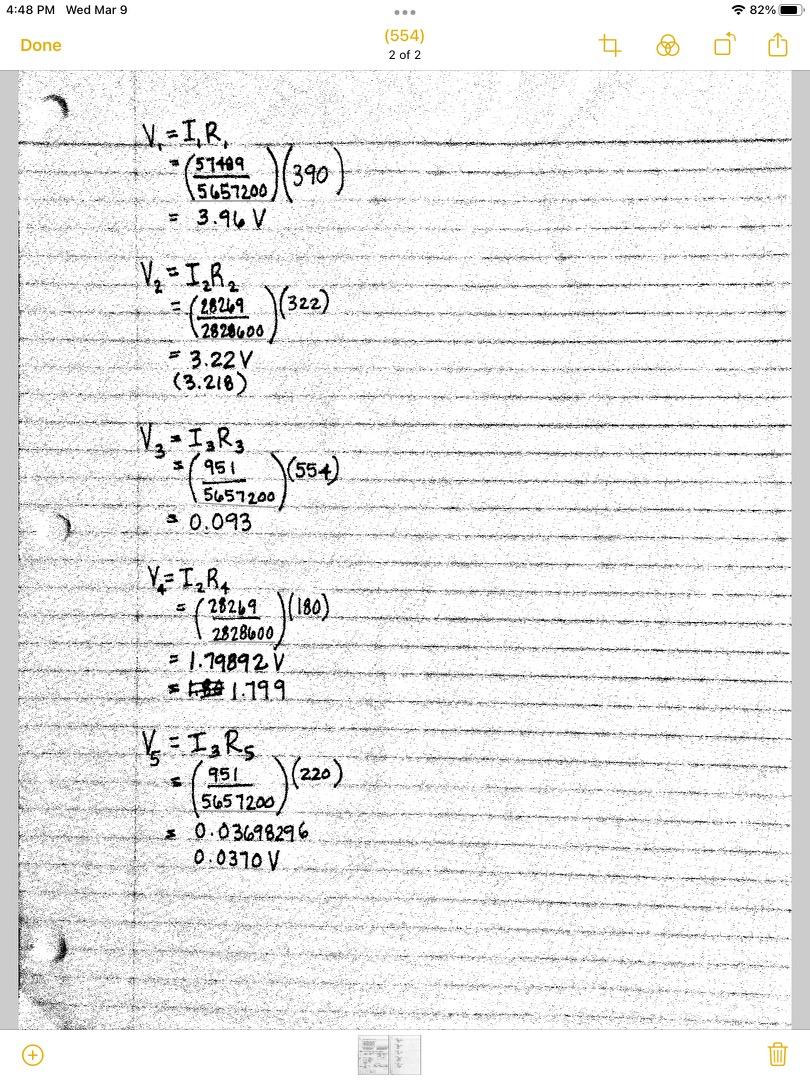 4:48 PM Wed Mar 9
82%
Done
(554)
2 of 2
V₁ = I₁R₁
= (57489/5657200)(390)
= 3.96 V
V₂ = I₂R₂
= (28269/2828600)(322)
= 3.22 V
(3.218)
V₃ = I₃R₃
= (951/5657200)(554)
= 0.093
V₄ = I₂R₄
= (28269/2828600)(180)
= 1.79892 V
= 1.799
V₅ = I₃R₅
= (951/5657200)(220)
= 0.03698296
0.0370 V